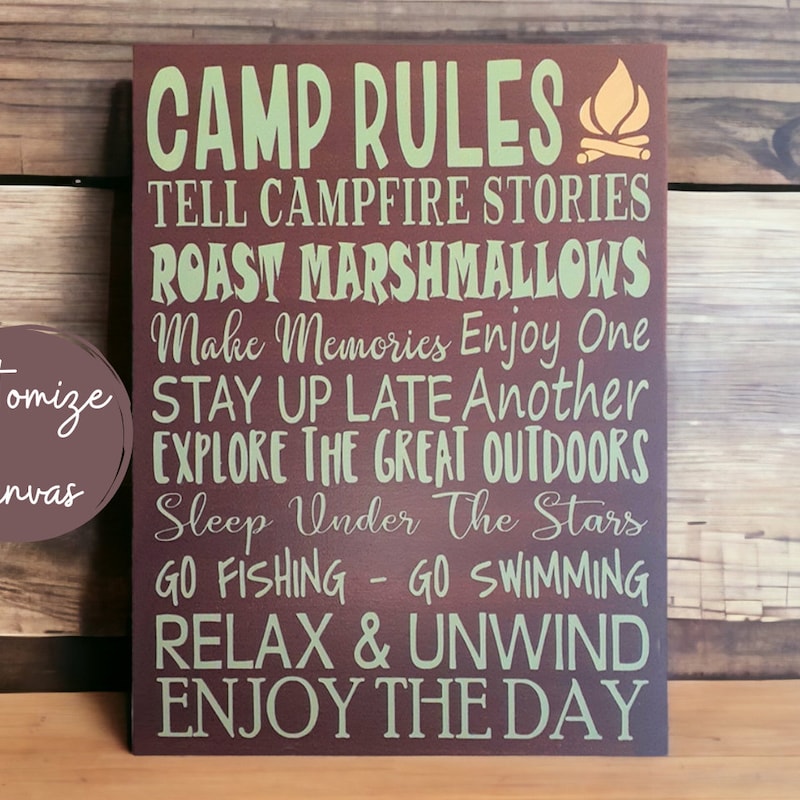 CAMP RULES
TELL CAMPFIRE STORIES
ROAST MARSHMALLOWS
Make Memories
STAY UP LATE
Enjoy One
Another
EXPLORE THE GREAT OUTDOORS
Sleep Under The Stars
GO FISHING - GO SWIMMING
RELAX & UNWIND
ENJOY THE DAY